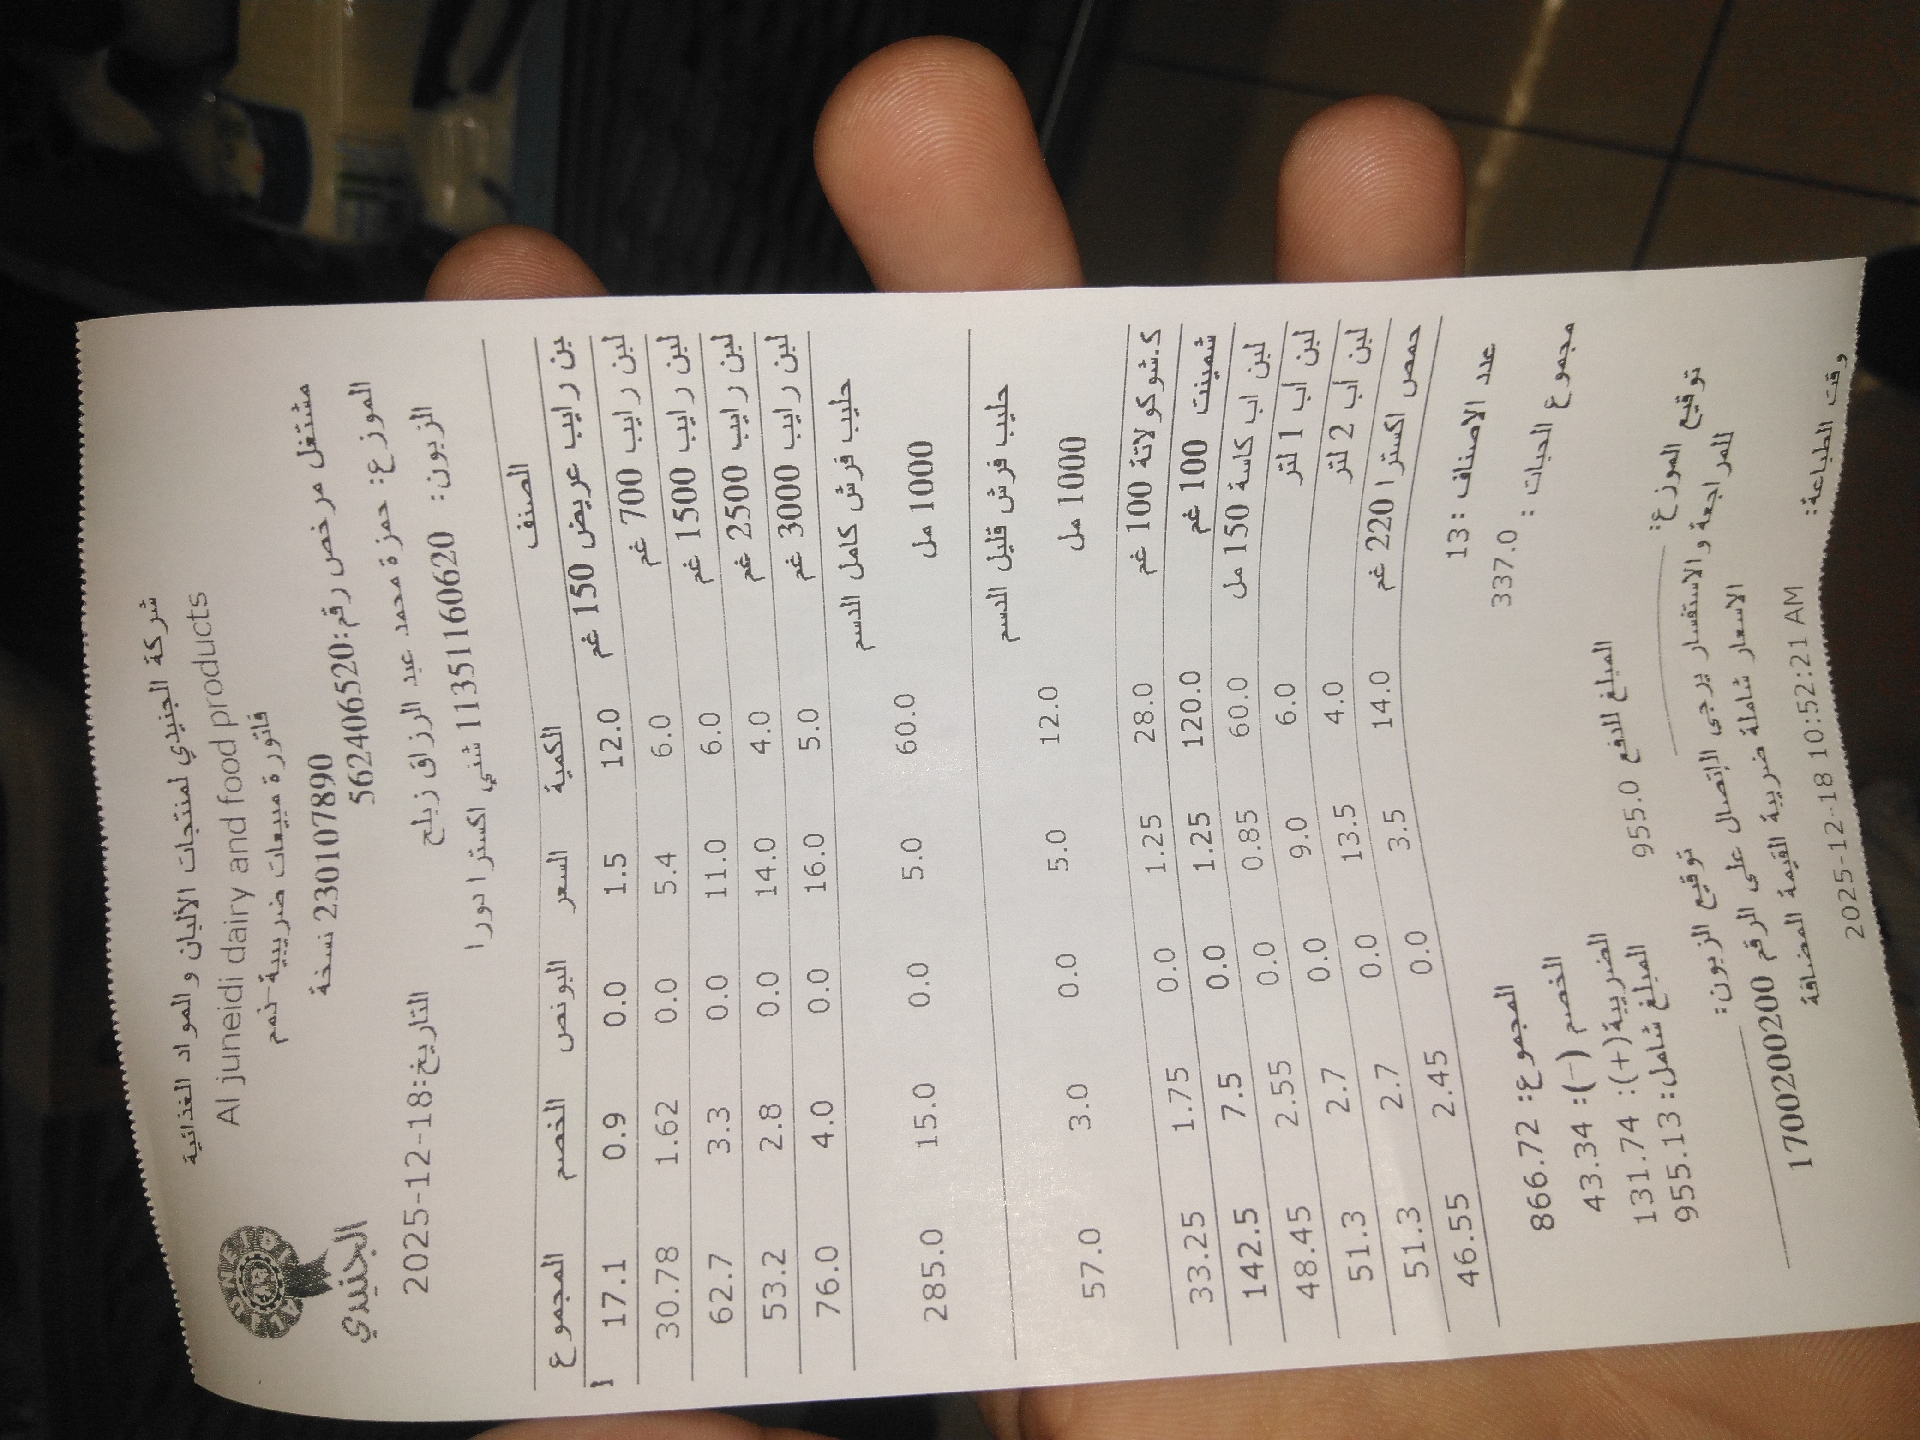 شركة الجنيدي لمنتجات الألبان و المواد الغذائية
Al juneidi dairy and food products
فاتورة مبيعات ضريبية-ذمم
230107890 نسخة
JUNEIDI
الجنيدي
مشتغل مرخص رقم:562406520
الموزع: حمزة محمد عبد الرزاق زبلح
التاريخ:2025-12-18
الزبون: 11351160620 شني اكسترا دورا
الصنف الكمية السعر البونص الخصم المجموع
بن رايب عريض 150 غم 12.0 1.5 0.0 0.9 17.1
لبن رايب 700 غم 6.0 5.4 0.0 1.62 30.78
لبن رايب 1500 غم 6.0 11.0 0.0 3.3 62.7
لبن رايب 2500 غم 4.0 14.0 0.0 2.8 53.2
لبن رايب 3000 غم 5.0 16.0 0.0 4.0 76.0
حليب فرش كامل الدسم
1000 مل 60.0 5.0 0.0 15.0 285.0
حليب فرش قليل الدسم
1000 مل 12.0 5.0 0.0 3.0 57.0
ك.شوكولاتة 100 غم 28.0 1.25 0.0 1.75 33.25
شمينت 100 غم 120.0 1.25 0.0 7.5 142.5
لبن اب كاسة 150 مل 60.0 0.85 0.0 2.55 48.45
لبن اب 1 لتر 6.0 9.0 0.0 2.7 51.3
لبن اب 2 لتر 4.0 13.5 0.0 2.7 51.3
حمص اكسترا 220 غم 14.0 3.5 0.0 2.45 46.55
عدد الاصناف :13
مجموع الحبات : 337.0
المجموع: 866.72
الخصم (-): 43.34
الضريبة(+): 131.74
المبلغ شامل: 955.13
المبلغ للدفع 955.0
توقيع الموزع:
توقيع الزبون:
للمراجعة والاستفسار يرجى الإتصال على الرقم 1700200200
الاسعار شاملة ضريبة القيمة المضافة
وقت الطباعة:
2025-12-18 10:52:21 AM